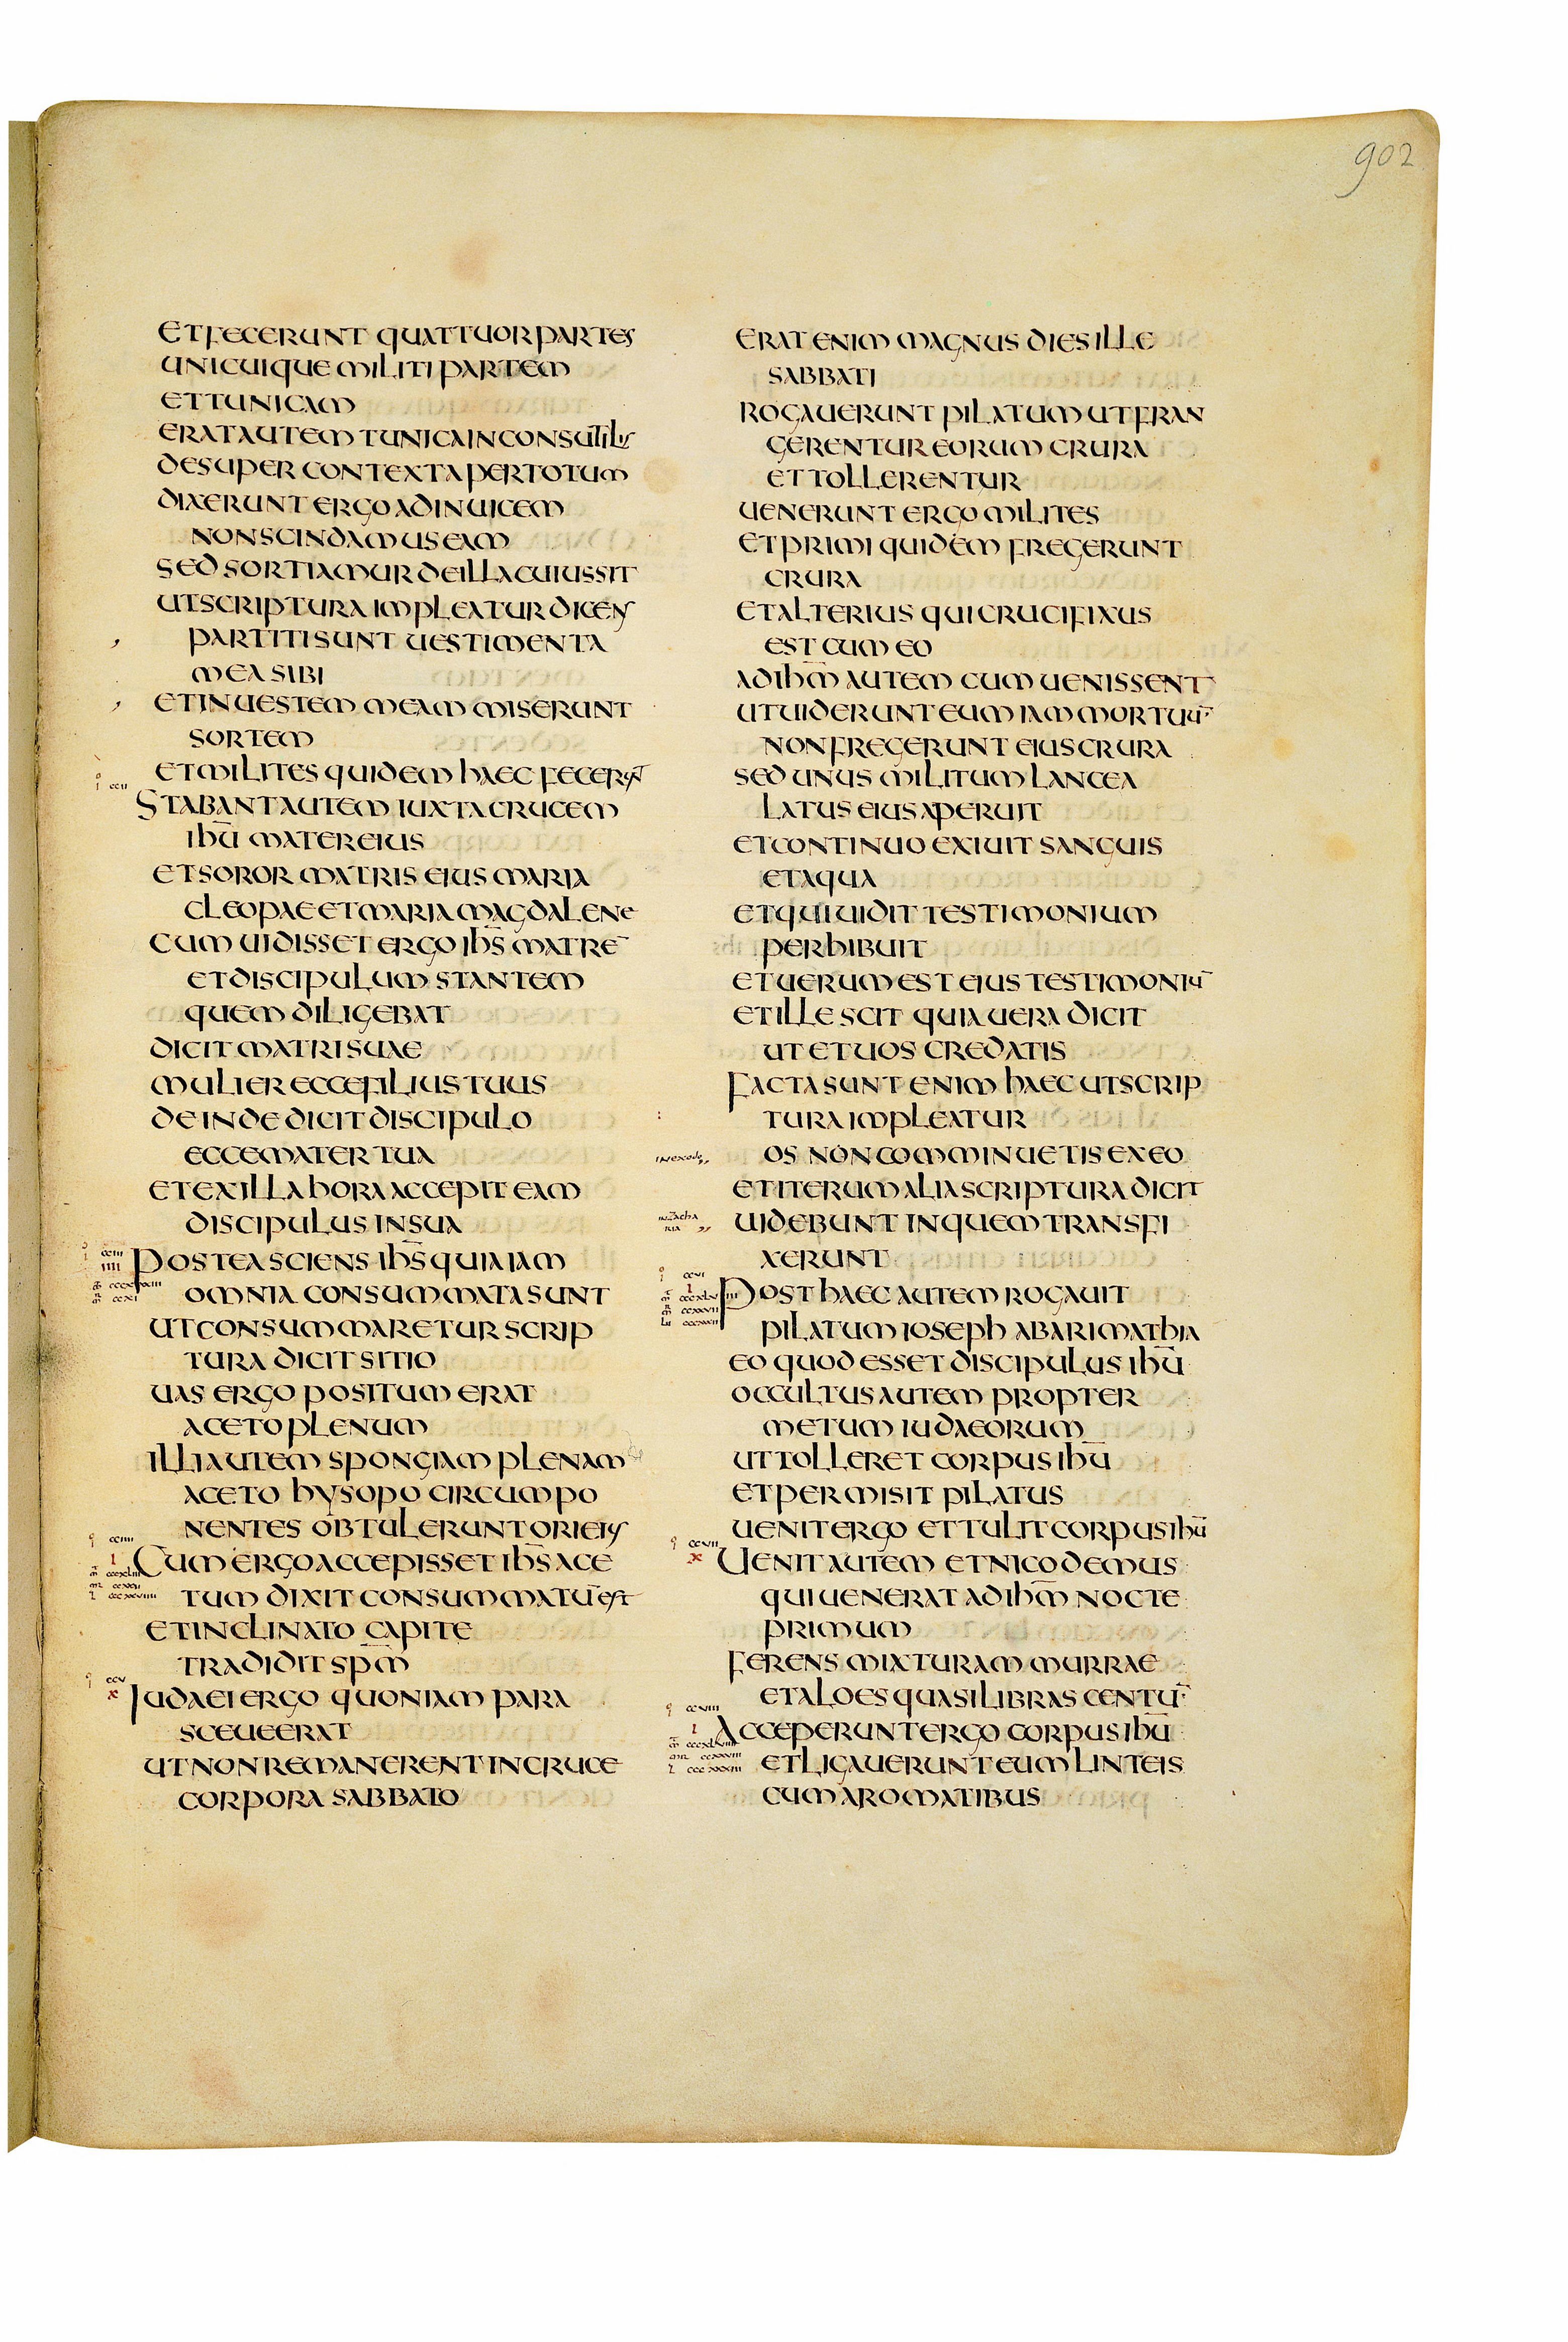 902
ET FECERUNT QUATTUOR PARTES
UNICUIQUE MILITI PARTEM
ET TUNICAM
ERAT AUTEM TUNICA INCONSUTILIS
DESUPER CONTEXTA PER TOTUM
DIXERUNT ERGO AD INUICEM
NON SCINDAMUS EAM
SED SORTIAMUR DE ILLA CUIUS SIT
UT SCRIPTURA IMPLEATUR DICENS
PARTITI SUNT UESTIMENTA
MEA SIBI
ET IN UESTEM MEAM MISERUNT
SORTEM
ET MILITES QUIDEM HAEC FECERUNT
STABANT AUTEM IUXTA CRUCEM
IHŪ MATER EIUS
ET SOROR MATRIS EIUS MARIA
CLEOPAE ET MARIA MAGDALENE
CUM UIDISSET ERGO IHS̄ MATRĒ
ET DISCIPULUM STANTEM
QUEM DILIGEBAT
DICIT MATRI SUAE
MULIER ECCE FILIUS TUUS
DEINDE DICIT DISCIPULO
ECCE MATER TUA
ET EX ILLA HORA ACCEPIT EAM
DISCIPULUS IN SUA
POSTEA SCIENS IHS̄ QUIA IAM
OMNIA CONSUMMATA SUNT
UT CONSUMMARETUR SCRIP
TURA DICIT SITIO
UAS ERGO POSITUM ERAT
ACETO PLENUM
ILLI AUTEM SPONGIAM PLENAM
ACETO HYSOPO CIRCUMPO
NENTES OBTULERUNT ORI EIUS
CUM ERGO ACCEPISSET IHS̄ ACE
TUM DIXIT CONSUMMATŪ EST
ET INCLINATO CAPITE
TRADIDIT SPM̄
IUDAEI ERGO QUONIAM PARA
SCEUE ERAT
UT NON REMANERENT IN CRUCE
CORPORA SABBATO
ERAT ENIM MAGNUS DIES ILLE
SABBATI
ROGAUERUNT PILATUM UT FRAN
GERENTUR EORUM CRURA
ET TOLLERENTUR
UENERUNT ERGO MILITES
ET PRIMI QUIDEM FREGERUNT
CRURA
ET ALTERIUS QUI CRUCIFIXUS
EST CUM EO
AD IHM̄ AUTEM CUM UENISSENT
UT UIDERUNT EUM IAM MORTUŪ
NON FREGERUNT EIUS CRURA
SED UNUS MILITUM LANCEA
LATUS EIUS APERUIT
ET CONTINUO EXIUIT SANGUIS
ET AQUA
ET QUI UIDIT TESTIMONIUM
PERHIBUIT
ET UERUM EST EIUS TESTIMONIŪ
ET ILLE SCIT QUIA UERA DICIT
UT ET UOS CREDATIS
FACTA SUNT ENIM HAEC UT SCRIP
TURA IMPLEATUR
OS NON COMMINUETIS EX EO
ET ITERUM ALIA SCRIPTURA DICIT
UIDEBUNT IN QUEM TRANSFI
XERUNT
POST HAEC AUTEM ROGAUIT
PILATUM IOSEPH AB ARIMATHIA
EO QUOD ESSET DISCIPULUS IHŪ
OCCULTUS AUTEM PROPTER
METUM IUDAEORUM
UT TOLLERET CORPUS IHŪ
ET PERMISIT PILATUS
UENIT ERGO ET TULIT CORPUS IHŪ
UENIT AUTEM ET NICODEMUS
QUI UENERAT AD IHM̄ NOCTE
PRIMUM
FERENS MIXTURAM MURRAE
ET ALOES QUASI LIBRAS CENTŪ
ACCEPERUNT ERGO CORPUS IHŪ
ET LIGAUERUNT EUM LINTEIS
CUM AROMATIBUS